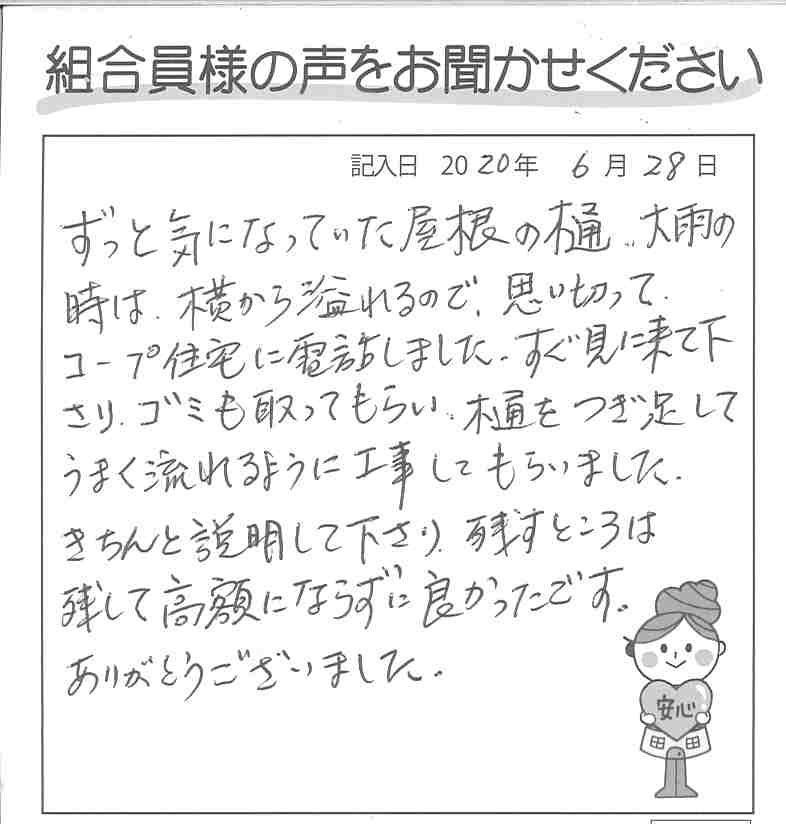 組合員様の声をお聞かせください
記入日 2020年 6月28日
ずっと気になっていた屋根の樋、大雨の
時は、横から溢れるので、思い切って、
コープ住宅に電話しました。すぐ見に来て下
さり、ゴミも取ってもらい、樋をつぎ足して
うまく流れるように工事してもらいました。
きちんと説明して下さり、残すところは
残して高額にならずに良かったです。
ありがとうございました。
安心